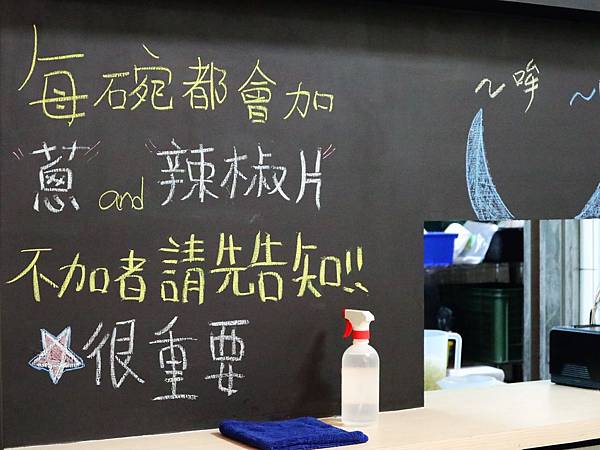 每碗都會加
"蔥" and "辣椒片"
不加者請先告知!!
☆很重要
~哞 ~